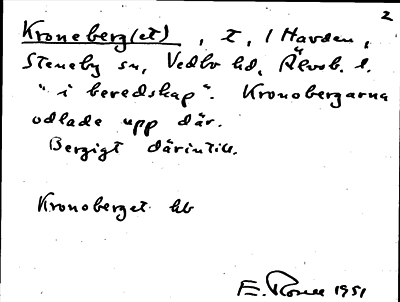 2
Kroneberg(et), t, i Havden,
Steneby sn, Vedbo hd, Älvsb. l.
"i beredskap". Kronobergarna
odlade upp där.
Bergigt därintill.
Kronoberget hb
E. 1951